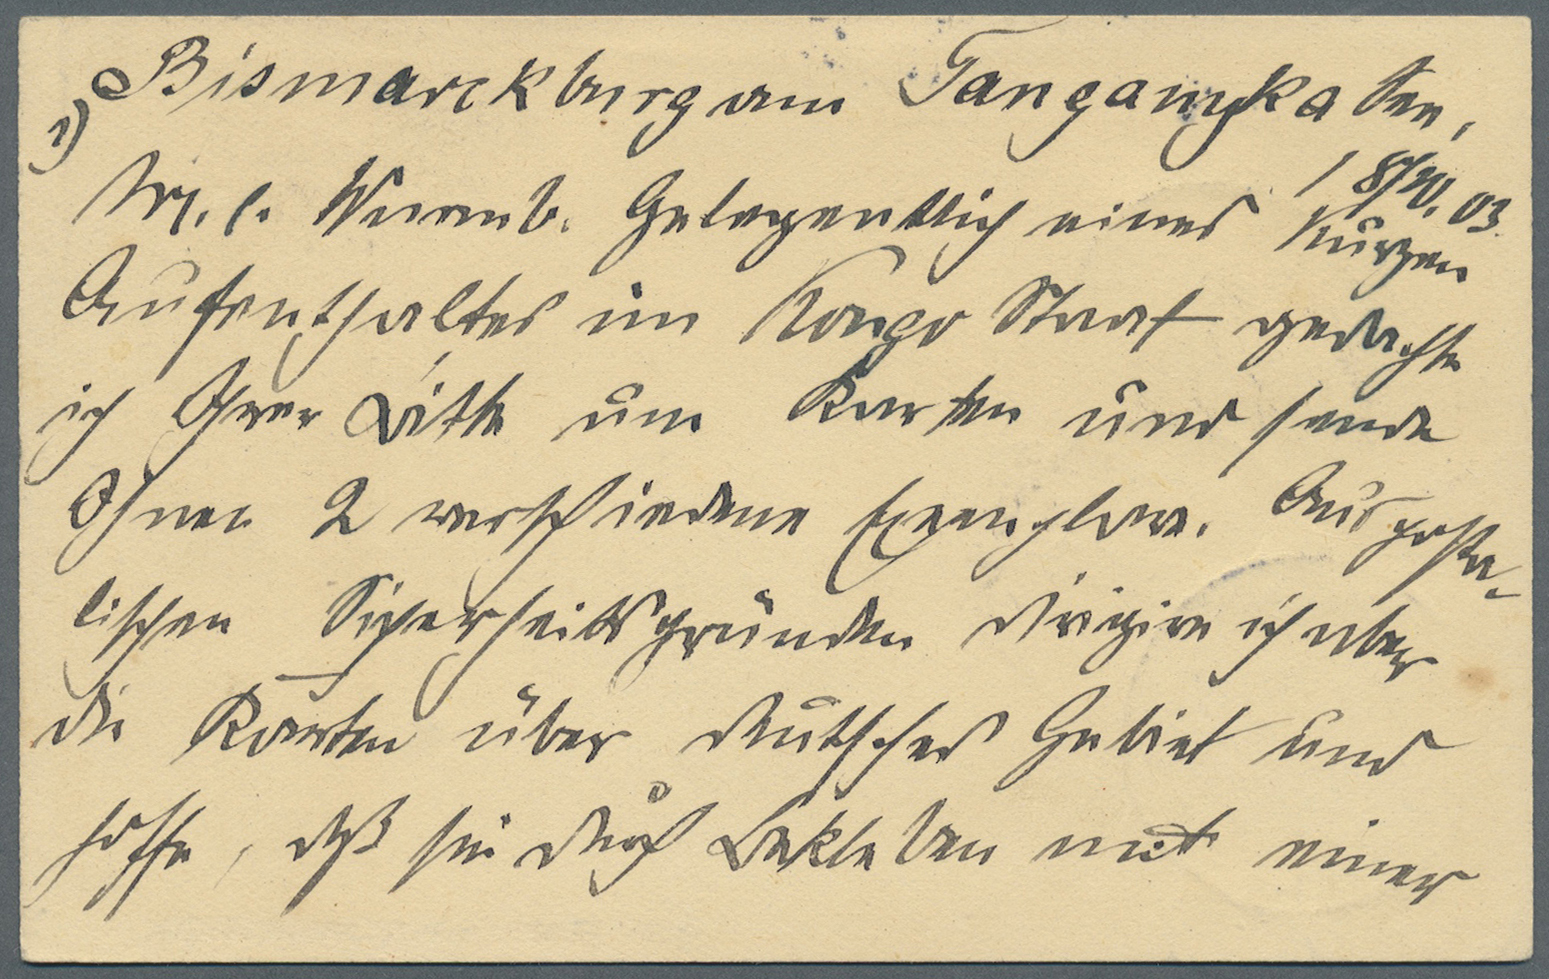 1) Bismarckburg am Tanganyka See,
18/IV. 03.
M. l. Gelegentlich eines kurzen
Aufenthaltes im Kongo Staat gedachte
ich Ihrer Bitte um Karten und sende
Ihnen 2 verschiedene Exemplare. Aus posta-
lischen Sicherheitsgründen dirigire ich aber
die Karten über deutsches Gebiet und
hoffe, daß sie durch Bekleben mit einer